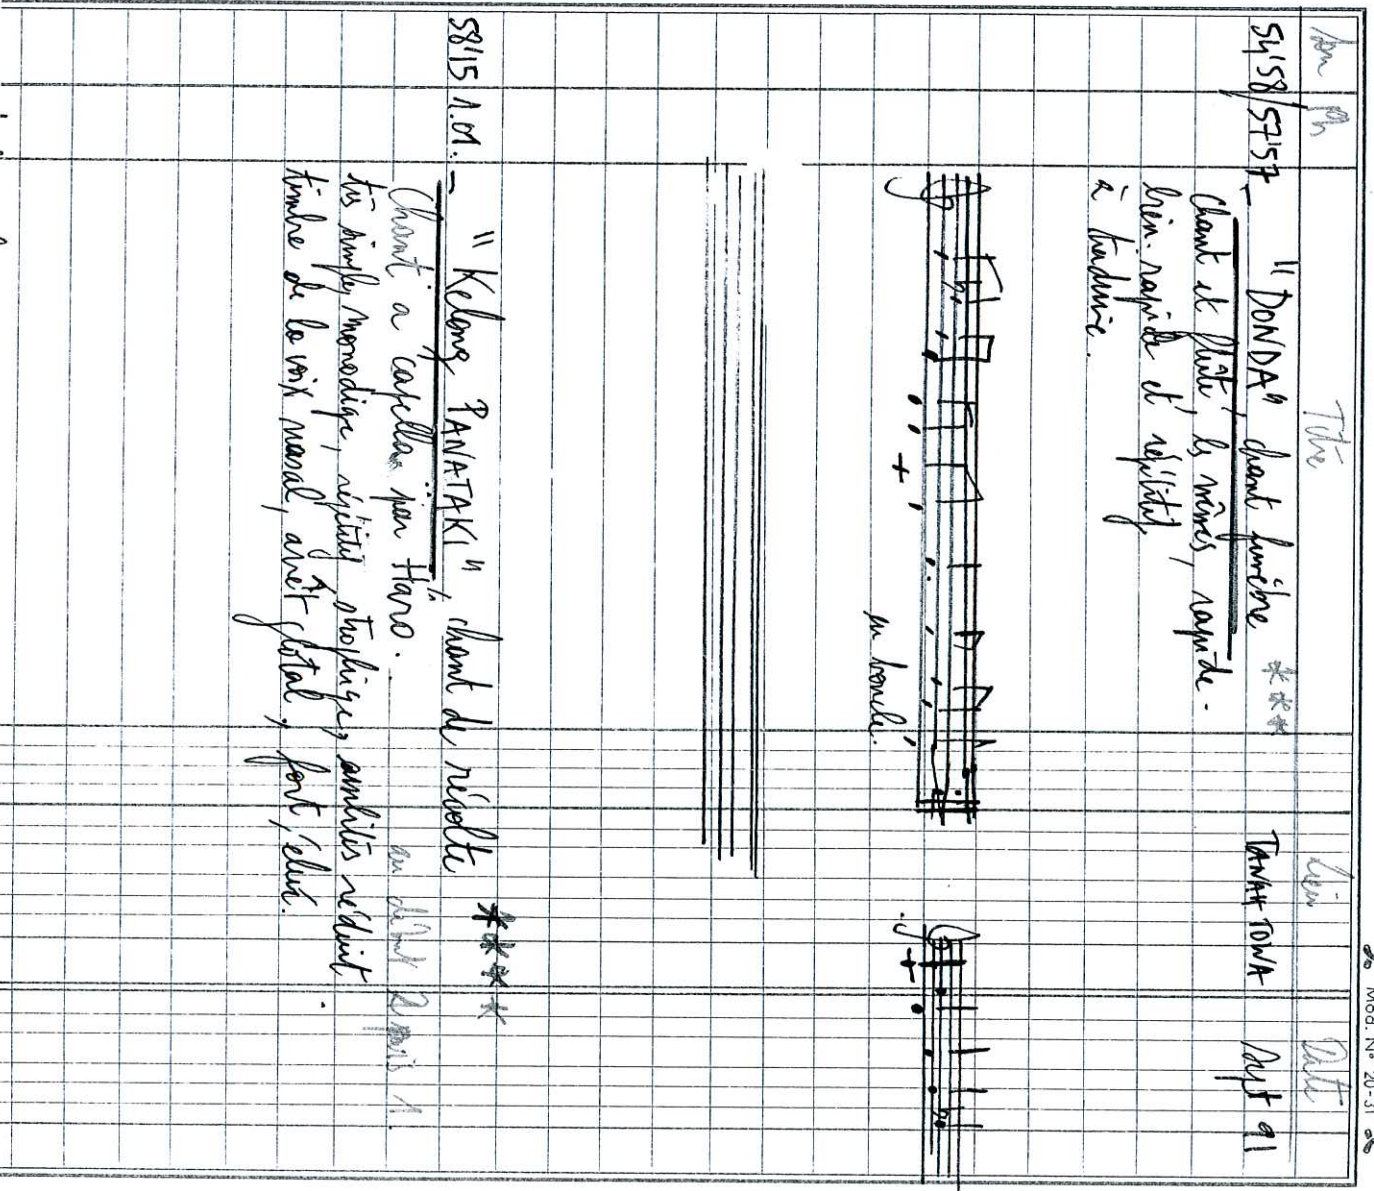 Mod. N° 20-31
Titre Lieu Date
54'58/57'57 - "DONDA" chant funèbre *** TANAH TOWA Sept 91
chant et flûte, les mêmes, rapide.
bien rapide et répétitif,
à traduire.
en boucle.
58'15 1.01. - "Kelong PANATAKI", chant de révolte ****
Chant a capella par Haro. au début 2 puis 1.
très simple, monodique, répétitif, strophique, ambitus réduit.
timbre de la voix nasal, arrêt glotal, fort,